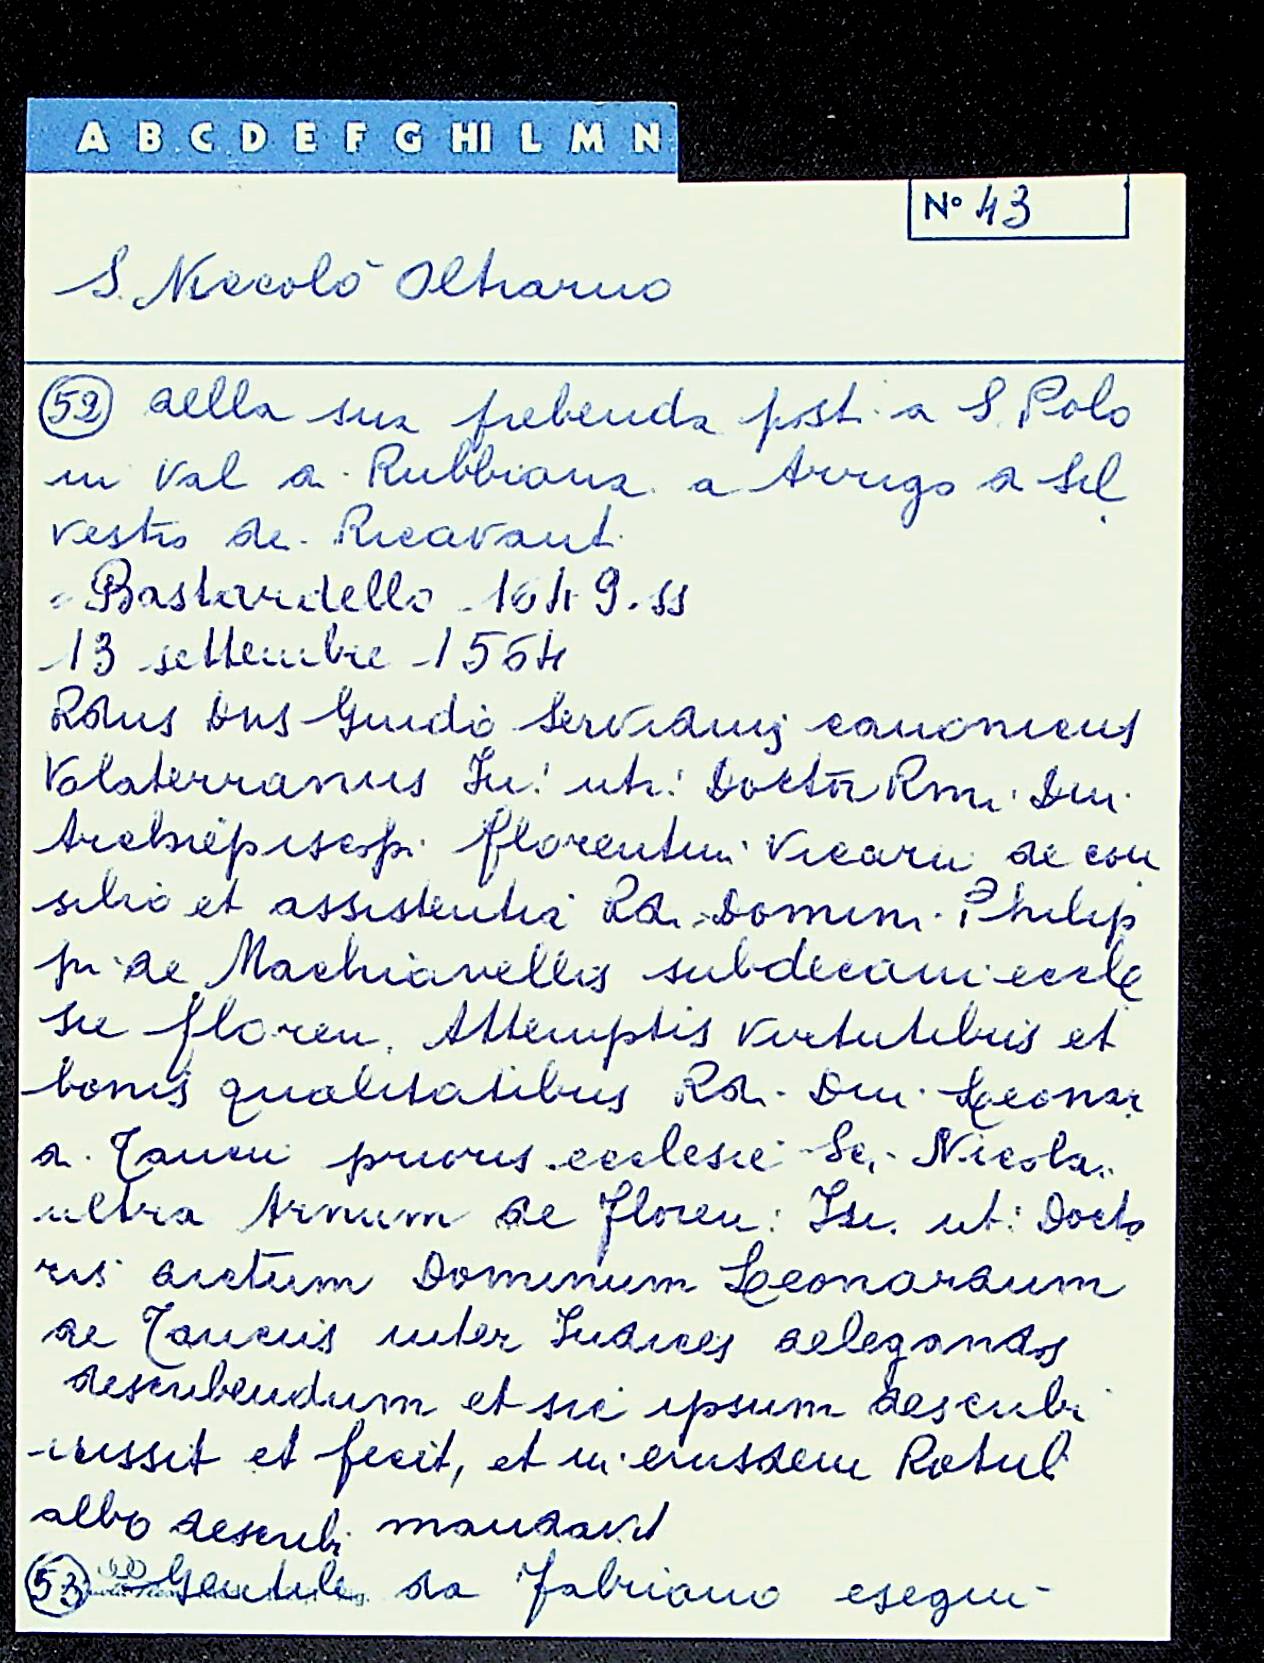 A B C D E F G HI L M N
Nº 43
S. Niccolò Oltrarno
52 della sua prebenda post. a S. Polo
in Val di Rubbiana a Arrigo di Sil
vestro de Ricavant.
Bastardello 1649. ss
13 settembre 1564
Rdus Dns Guido Servidius canonicus
Volaterranus Iu: utr: Doctor Rmi Dni
Archiepiscopi florentini Vicarii de con
silio et assistentia Rdi Domini Philip
pi de Machiavellis subdecani eccle
sie floren. Attemptis virtutibus et
bonis qualitatibus Rdi Dni Leonar
di Tanci prioris ecclesie Sci Nicolai
ultra Arnum de floren: Iu. ut: Docto
ris dictum Dominum Leonardum
de Tancis inter Iudices delegandos
describendum et sic ipsum describi
iussit et fecit, et in eiusdem Rotul
albo describi mandavit
53 Gentile da Fabriano esegui